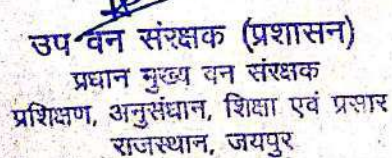 उप वन संरक्षक (प्रशासन)
प्रधान मुख्य वन संरक्षक
प्रशिक्षण, अनुसंधान, शिक्षा एवं प्रसार
राजस्थान, जयपुर